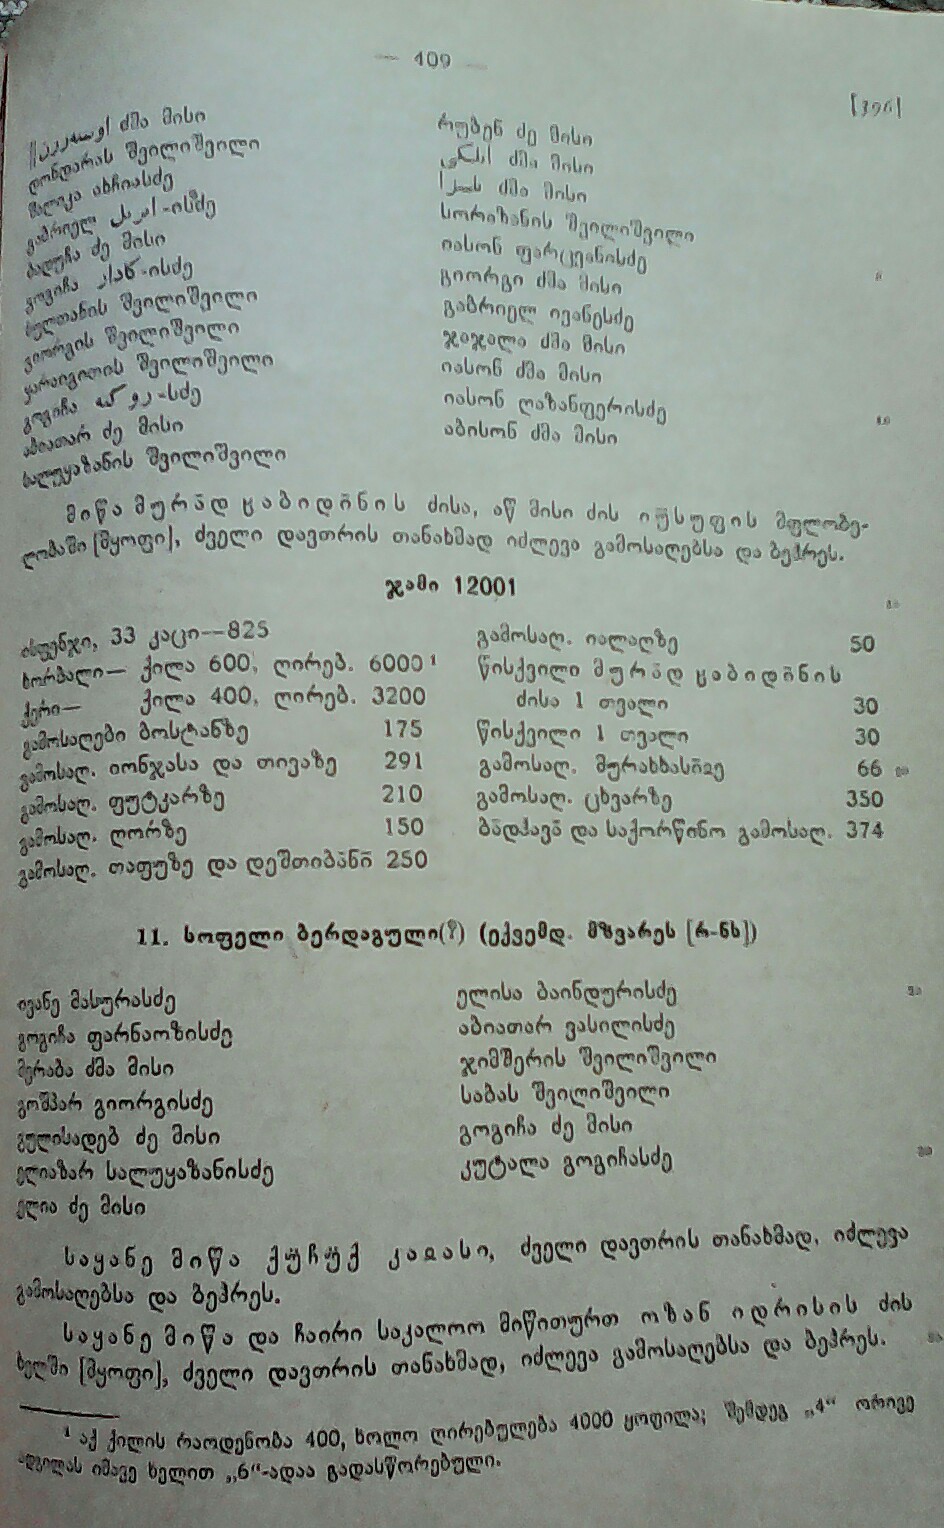 — 409 —
[396]
ძმა მისი
დონდარას შვილიშვილი
მალიკა ახჩიასძე
გაბრიელ -ისძე
ბადუჩა ძე მისი
გოგიჩა -ისძე
სულთანის შვილიშვილი
გიორგის შვილიშვილი
ყარაიგითის შვილიშვილი
გოგიჩა -სძე
აბიათარ ძე მისი
სალუყაზანის შვილიშვილი
რუბენ ძე მისი
ძმა მისი
ძმა მისი
სორიზანის შვილიშვილი
იასონ ფარცვანისძე
გიორგი ძმა მისი
გაბრიელ ივანესძე
ჯაჯალა ძმა მისი
იასონ ძმა მისი
იასონ ღაზანფერისძე
აბისონ ძმა მისი
მიწა მურა̄დ ცაბიდო̄ნის ძისა, აწ მისი ძის იუ̄სუფის მფლობე-
ლობაში [მყოფი], ძველი დავთრის თანახმად იძლევა გამოსაღებსა და ბეჰრეს.
ჯამი 12001
ისფენჯი, 33 კაცი—825
ხორბალი— ქილა 600, ღირებ. 6000¹
ქერი— ქილა 400, ღირებ. 3200
გამოსაღები ბოსტანზე 175
გამოსაღ. იონჯასა და თივაზე 291
გამოსაღ. ფუტკარზე 210
გამოსაღ. ღორზე 150
გამოსაღ. თაფუზე და დეშთიბა̄ნი̄ 250
გამოსაღ. იალაღზე 50
წისქვილი მურა̄დ ცაბიდო̄ნის
ძისა 1 თვალი 30
წისქვილი 1 თვალი 30
გამოსაღ. 66
გამოსაღ. ცხვარზე 350
ბა̄დჰავა̄ და საქორწინო გამოსაღ. 374
11. სოფელი ბერდაგული(?) (ექვემდ. მზვარეს [რ-ნს])
ივანე მასურასძე
გოგიჩა ფარნაოზისძე
მერაბა ძმა მისი
გოშპარ გიორგისძე
გულისადებ ძე მისი
ელიაზარ სალუყაზანისძე
ელია ძე მისი
ელისა ბაინდურისძე
აბიათარ ვასილისძე
ჯიმშერის შვილიშვილი
საბას შვილიშვილი
გოგიჩა ძე მისი
კუტალა გოგიჩასძე
საყანე მიწა ქუ̄ჩუ̄ქ ძველი დავთრის თანახმად, იძლევა
გამოსაღებსა და ბეჰრეს.
საყანე მიწა და ჩაირი საკალოო მიწითურთ ოზან იდრისის ძის
ხელში [მყოფი], ძველი დავთრის თანახმად, იძლევა გამოსაღებსა და ბეჰრეს.
¹ აქ ქილის რაოდენობა 400, ხოლო ღირებულება 4000 ყოფილა; შემდეგ „4“ ორივე
ადგილას იმავე ხელით „6“-ადაა გადასწორებული.